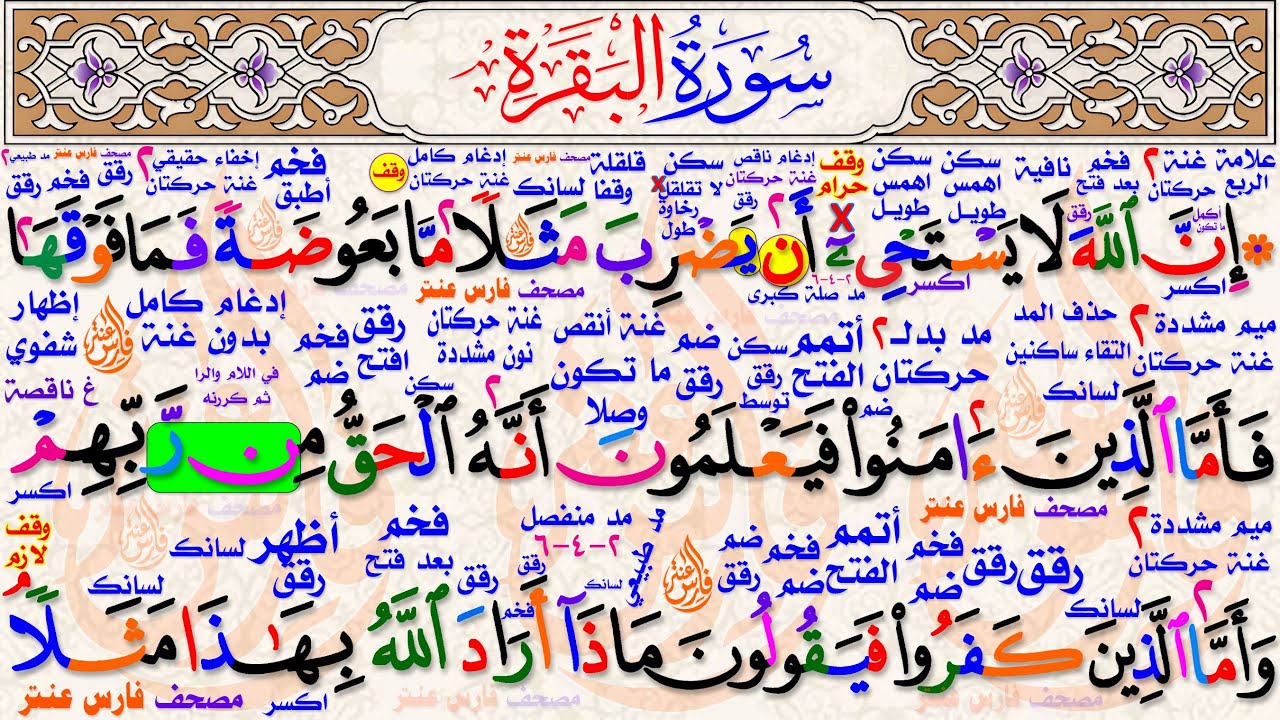 سُورَةُ الْبَقَرَةِ
علامة غنة ٢ فخم نافية سكن سكن وقف إدغام ناقص سكن قلقلة مصحف فارس عنتر إدغام كامل وقف فخم إخفاء حقيقي ٢ رقق مصحف فارس عنتر مد طبيعي ٢
الربع حركتان بعد فتح اهمس اهمس حرام غنة حركتان لا تقلقل x وقفا لسانك غنة حركتان أطبق غنة حركتان فخم رقق
أكمل ما تكون رقق طويل طويل X رقق ٢ رخاوة طول
۞ إِنَّ ٱللَّهَ لَا يَسْتَحْىِۦٓ أَن يَضْرِبَ مَثَلًا مَّا بَعُوضَةً فَمَا فَوْقَهَا
اكسر اكسر ٢-٤-٦ مد صلة كبرى مصحف فارس عنتر
ميم مشددة ٢ حذف المد مد بدل ٢ أتمم سكن ضم غنة أنقص غنة حركتان رقق فخم إدغام كامل فارس عنتر إظهار
غنة حركتان التقاء ساكنين حركتان الفتح رقق رقق ما تكون نون مشددة افتح ضم بدون غنة شفوي
لسانك ضم توسط وصلا ٢ سكن في اللام والرا ثم كررنه غ ناقصة
فَأَمَّا ٱلَّذِينَ ءَامَنُوا۟ فَيَعْلَمُونَ أَنَّهُ ٱلْحَقُّ مِن رَّبِّهِمْ
مصحف فارس عنتر اكسر
ميم مشددة ٢ رقق رقق فخم أتمم فخم ضم مد طبيعي مد منفصل فخم أظهر لسانك فارس عنتر وقف
غنة حركتان ضم الفتح ضم رقق فارس عنتر ٢-٤-٦ بعد فتح رقق لسانك لازم
لسانك لسانك رقق رقق فخم
وَأَمَّا ٱلَّذِينَ كَفَرُوا۟ فَيَقُولُونَ مَاذَآ أَرَادَ ٱللَّهُ بِهَٰذَا مَثَلًا ۘ
مصحف فارس عنتر مصحف فارس عنتر اكسر مصحف فارس عنتر